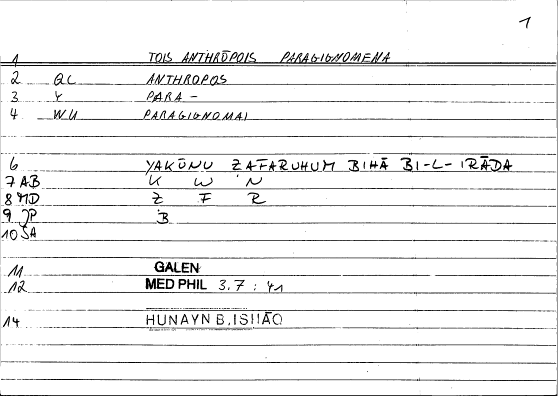 1
1 TOIS ANTHRŌPOIS PARAGIGNOMENA
2 QL ANTHROPOS
3 Y PARA -
4 WU PARAGIGNOMAI
6 YAKŪNU ẒAFARUHUM BIHĀ BI-L-IRĀDA
7 AB K W N
8 MD Ẓ F R
9 JP B
10 SA
11 GALEN
12 MED PHIL 3.7 : 41
14 HUNAYN B. ISHĀQ